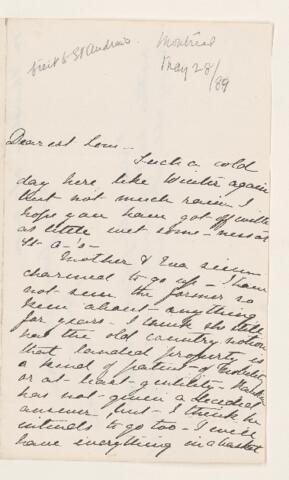 visit to St Andrews. Montreal
May 28/89
Dearest Lou –
Such a cold
day here like winter again
but not much rain. I
hope you have got off with
as little wet some-ness at
St. A-'s –
Mother & Eva seem
charmed to go up – I have
not seen the former so
keen about anything
for years – I think she still
has the old country notion
that landed property is
a kind of patent of
or at least gentility –
has not given a decided
answer but – I think he
intends to go too – I will
have everything in a basket